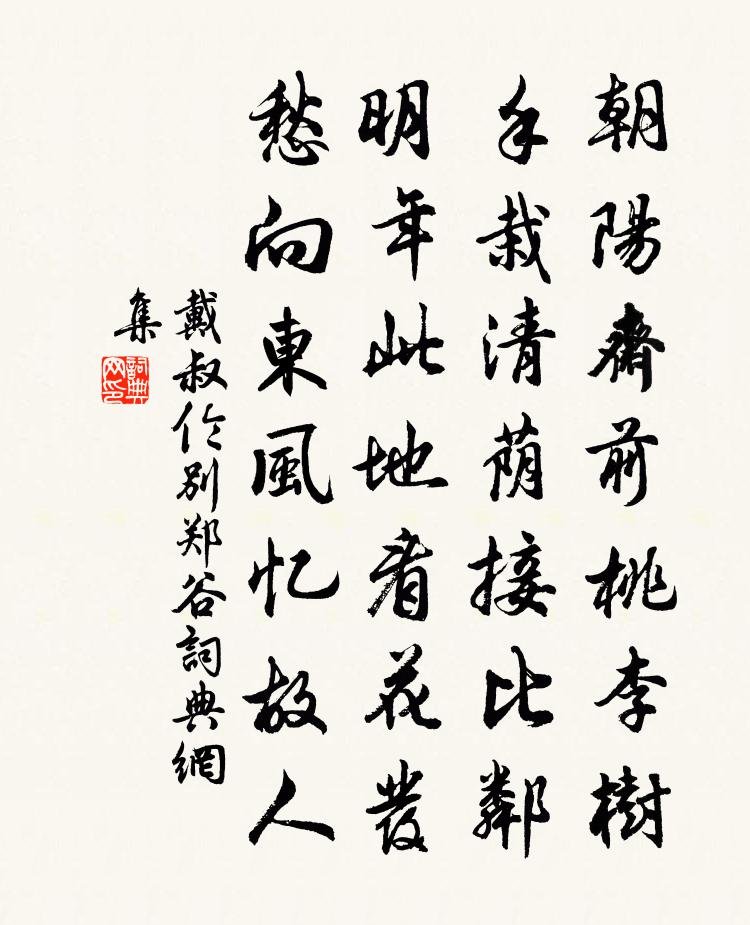 朝陽齋前桃李樹
手栽清荫接比鄰
明年此地看花發
愁向東風忆故人
戴叔伦別郑谷詞典網
集
詞典网印